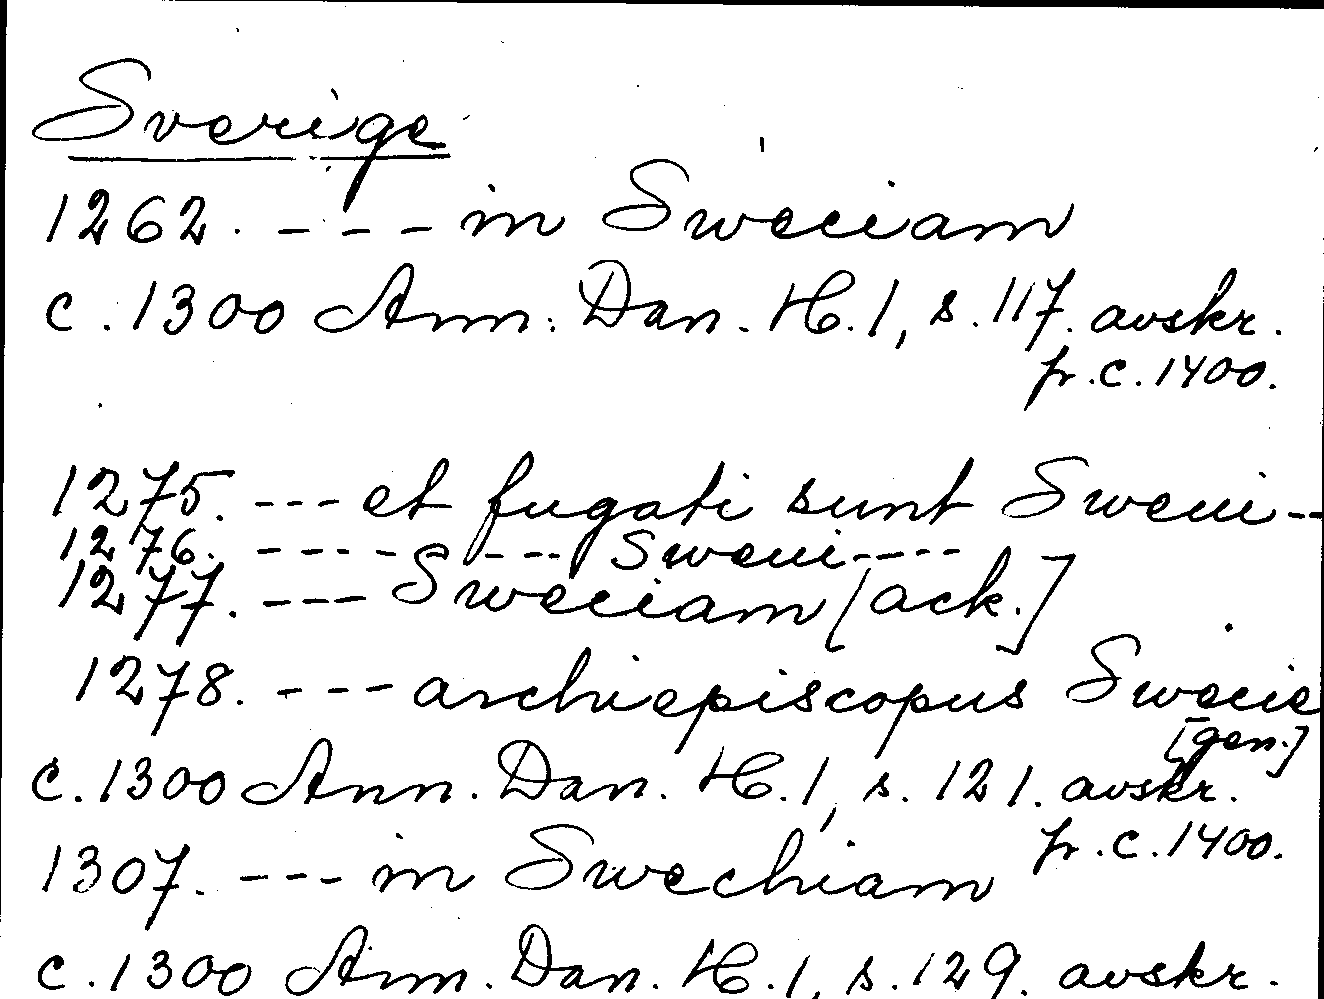 Sverige
1262. - - - in Sweciam
c. 1300 Ann. Dan. H. 1, s. 117. avskr.
fr. c. 1400.
1275. - - - et fugati sunt Sweui - -
1276. - - - - - - - - Sweui - - - -
1277. - - - Sweciam [ack.]
1278. - - - archiepiscopus Swecie
[gen.]
c. 1300 Ann. Dan. H. 1, s. 121. avskr.
fr. c. 1400.
1307. - - - in Swechiam
c. 1300 Ann. Dan. H. 1, s. 129. avskr.